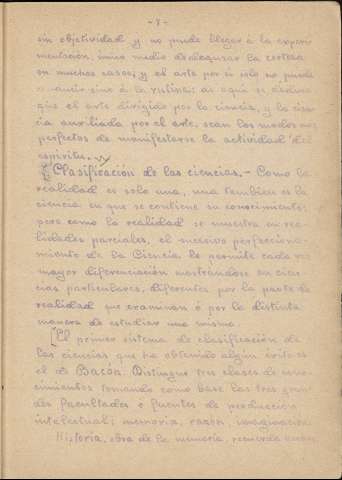 - 7 -
sin objetividad y no puede llegar á la experi-
mentación, único medio de asegurar la certeza
en muchos casos; y el arte por si solo no puede
sino á la rutina: de aqui se deduce
que el arte dirigido por la ciencia, y la cien-
cia auxiliada por el arte, sean los modos mas
perfectos de manifestarse la actividad del
espiritu.
Clasificación de las ciencias. - Como la
realidad es solo una, una tambien es la
ciencia en que se contiene su conocimiento;
pero como la realidad se muestra en rea-
lidades parciales, el sucesivo perfecciona-
miento de la Ciencia le permite cada vez
mayor diferenciación mostrandose en cien-
cias particulares, diferentes por la parte de
realidad que examinan ó por la distinta
manera de estudiar una misma.
[El primer sistema de clasificación de
las ciencias que ha obtenido algún éxito es
el de Bacón. Distingue tres clases de cono-
cimientos tomando como base las tres gran-
des facultades ó fuentes de producción
intelectual; memoria, razón, imaginación.
Historia, obra de la memoria, recuerda